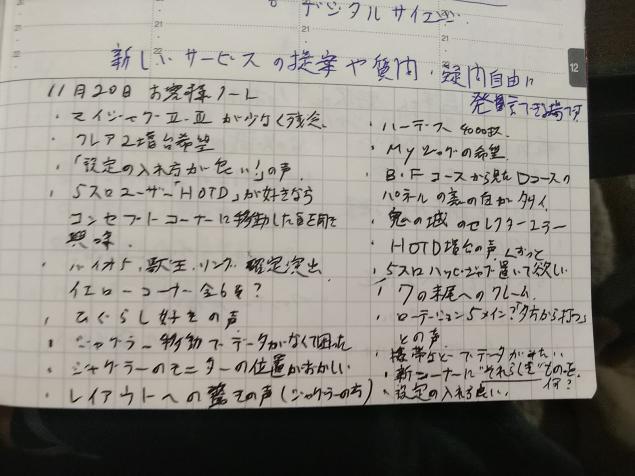 デジタルサイン
新しいサービスの提案や質問・疑問自由に
発言できる場です
12
11月20日 お客様ノート
・マイジャグⅡ・Ⅲが少なく残念
・クレア2増台希望
・「設定の入れ方が良い!」の声
・5スロユーザー「HOTD」が好きなら
コンセプトコーナーに移動した
興味.
・バイオ5、獣王、リング 確定演出
イエローコーナー全6を?
・ひぐらし好きの声
・ジャグラー移動でデータがなくて困った
・ジャグラーのモニターの位置がおかしい
・レイアウトへの驚きの声(ジャグラーの方)
・ハーデス 4000枚.
・Myジャグの希望.
・B.FコースからみたDコースの
パネルの裏の方がダサイ.
・鬼の城のセレクターエラー
・HOTD増台の声
・5スロハッピージャグ置いて欲しい
・7の末尾へのクレーム.
・ローテーション5メイン?夕方から打つ
との声.
・携帯などでデータがみたい
・新コーナーに"それらしき"ものを.
何?
・設定の入れ方良い.